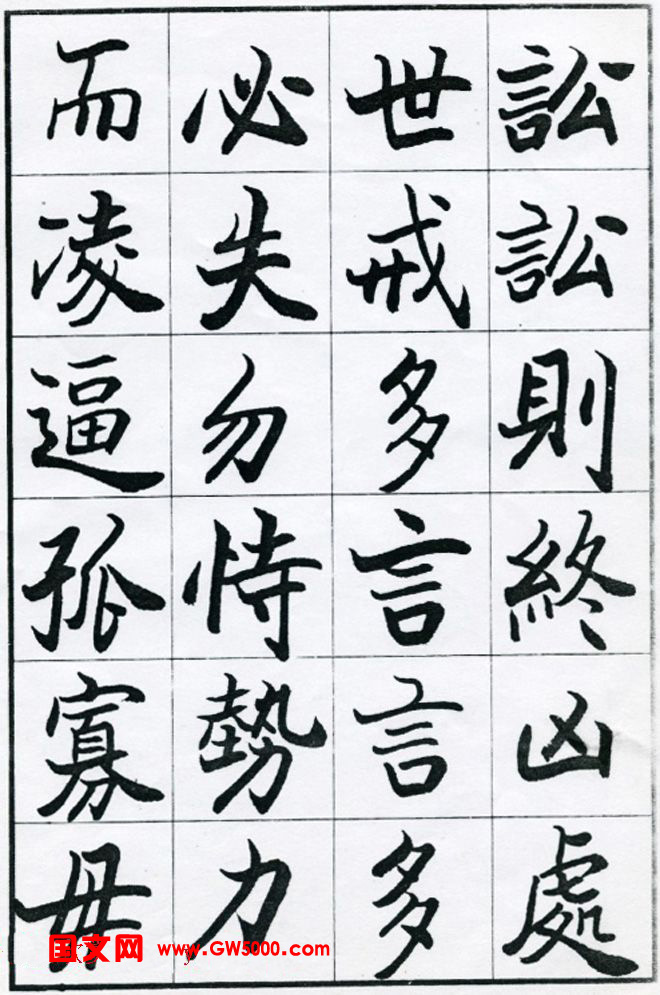 訟訟則終凶處
世戒多言言多
必失勿恃勢力
而凌逼孤寡毋
国文网 www.GW5000.com